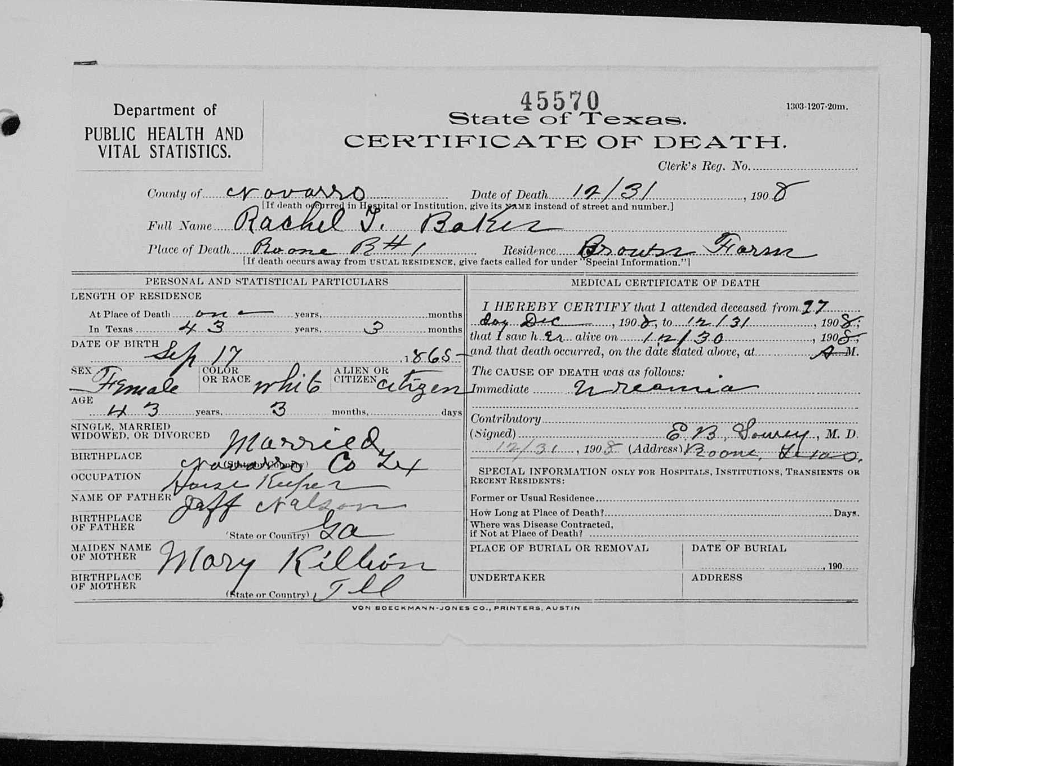 45570
1303-1207-20m.
Department of
PUBLIC HEALTH AND
VITAL STATISTICS.
State of Texas.
CERTIFICATE OF DEATH.
Clerk's Reg. No.
County of Navarro Date of Death 12/31, 1908
[If death occurred in Hospital or Institution, give its NAME instead of street and number.]
Full Name Rachel T. Baker
Place of Death Roane R#1 Residence Brown Farm
[If death occurs away from USUAL RESIDENCE, give facts called for under "Special Information."]
PERSONAL AND STATISTICAL PARTICULARS
LENGTH OF RESIDENCE
At Place of Death one years, months
In Texas 43 years, 3 months
DATE OF BIRTH
Sep 17 1865
SEX Female COLOR OR RACE white ALIEN OR CITIZEN citizen
AGE
43 years, 3 months, days
SINGLE, MARRIED
WIDOWED, OR DIVORCED Married
BIRTHPLACE
(State or Country) Navarro Co Tex
OCCUPATION House Keeper
NAME OF FATHER Jeff Nelson
BIRTHPLACE
OF FATHER
(State or Country) Ga
MAIDEN NAME
OF MOTHER Mary Killion
BIRTHPLACE
OF MOTHER
(State or Country) Ill
MEDICAL CERTIFICATE OF DEATH
I HEREBY CERTIFY that I attended deceased from 27
day Dec, 1908, to 12/31, 1908;
that I saw her alive on 12/30, 1908;
and that death occurred, on the date stated above, at A M.
The CAUSE OF DEATH was as follows:
Immediate Ureamia
Contributory
(Signed) E. B. , M. D.
12/31, 1908 (Address) Roane, Texas.
SPECIAL INFORMATION ONLY FOR HOSPITALS, INSTITUTIONS, TRANSIENTS OR
RECENT RESIDENTS:
Former or Usual Residence
How Long at Place of Death? Days.
Where was Disease Contracted,
if Not at Place of Death?
PLACE OF BURIAL OR REMOVAL DATE OF BURIAL
, 190
UNDERTAKER ADDRESS
VON BOECKMANN-JONES CO., PRINTERS, AUSTIN